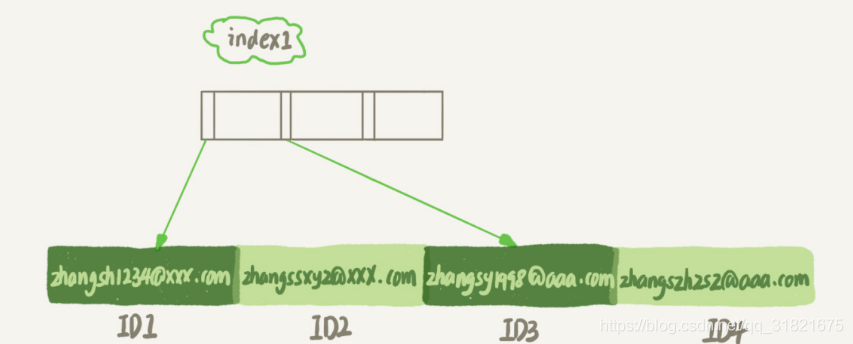 index1
zhangsh1234@xxx.com zhangssxyz@xxx.com zhangsy1998@aaa.com zhangszhzsz@aaa.com
ID1 ID2 ID3 ID4
https://blog.csdn.net/qq_31821675